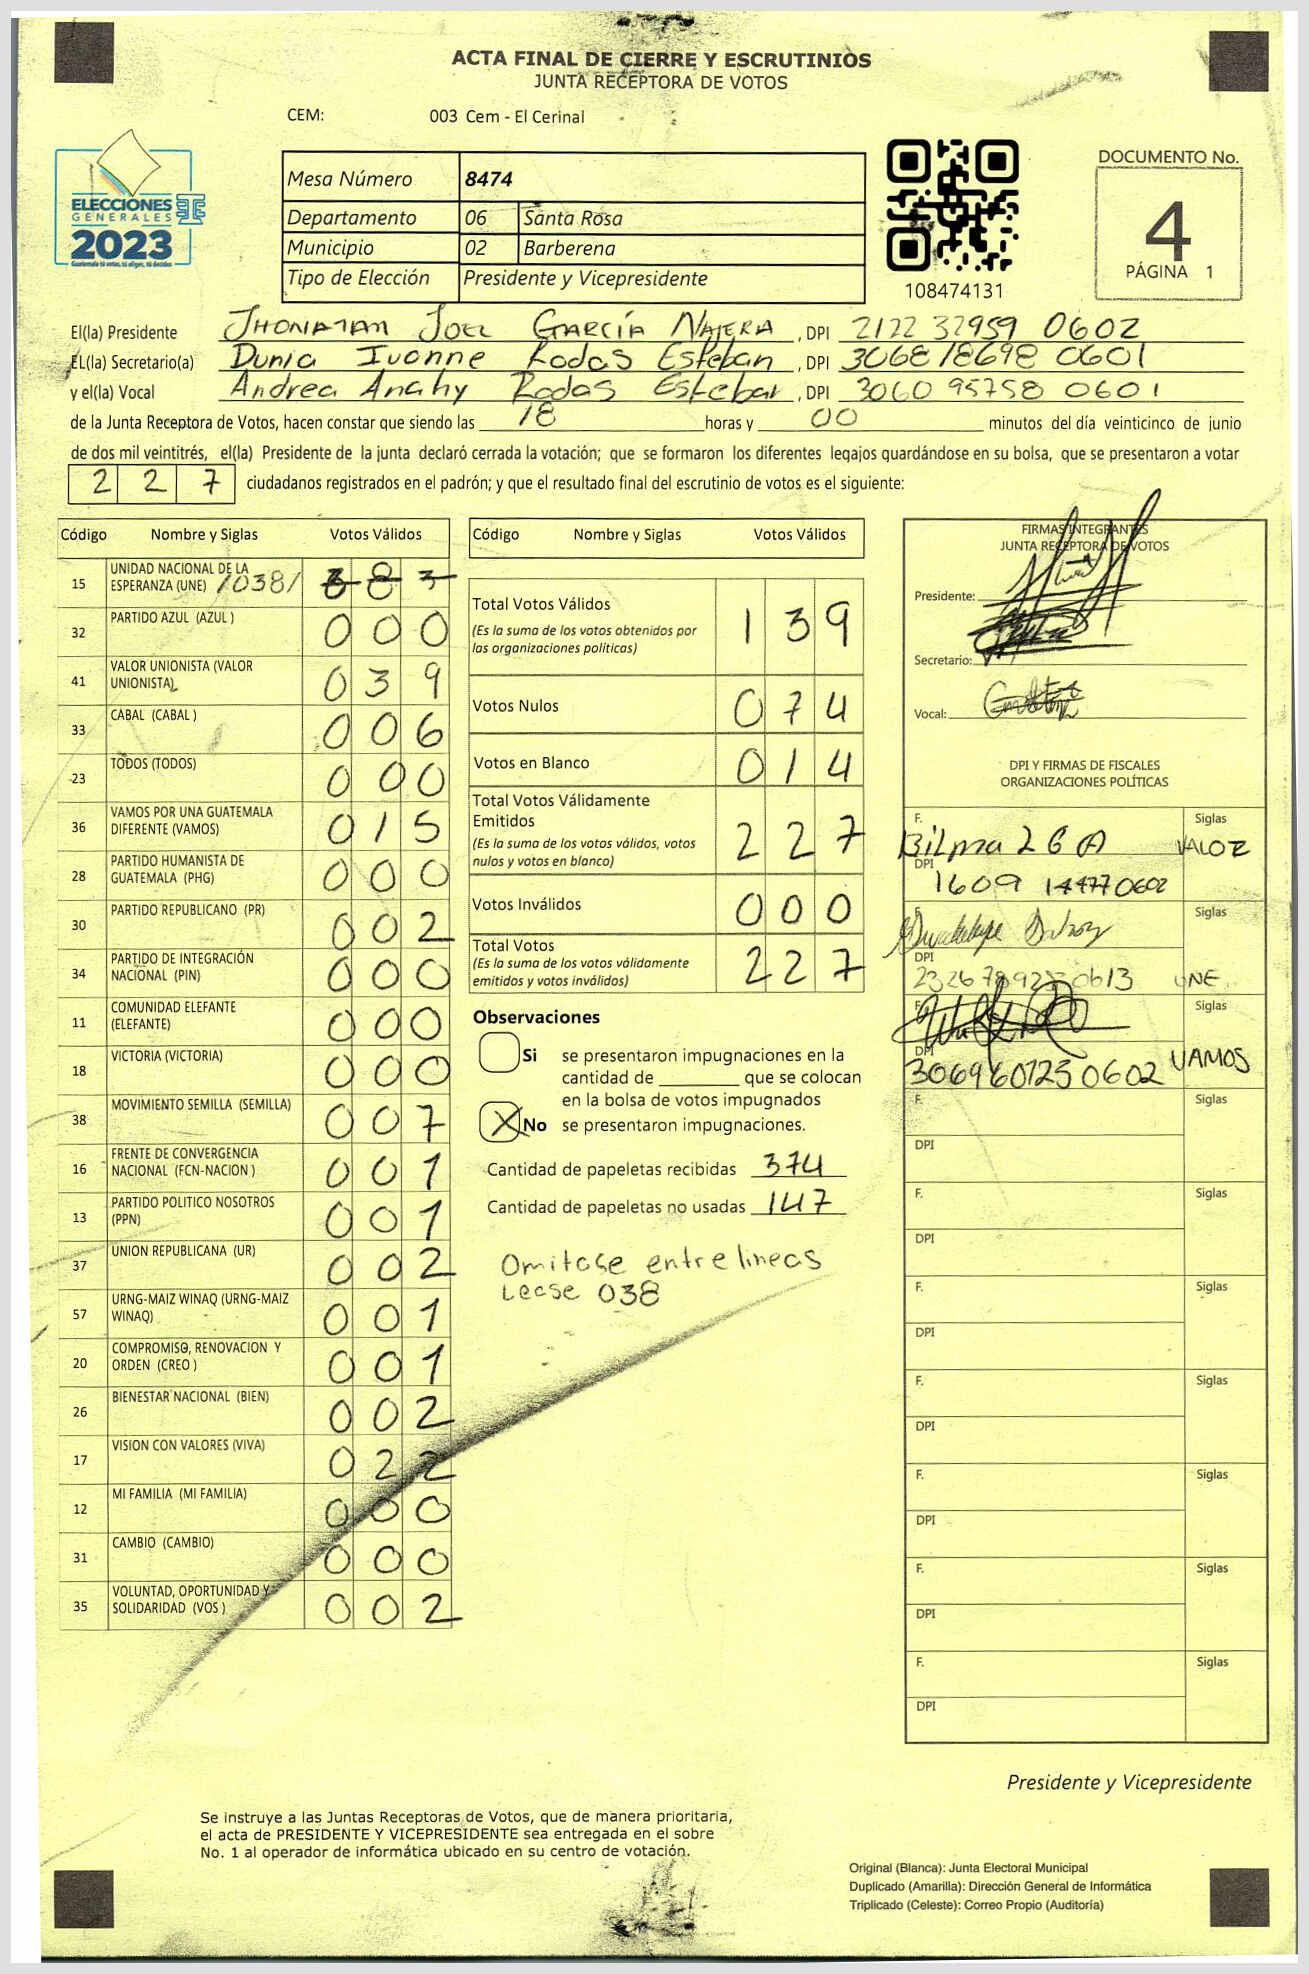 ACTA FINAL DE CIERRE Y ESCRUTINIOS
JUNTA RECEPTORA DE VOTOS
CEM: 003 Cem - El Cerinal
ELECCIONES
GENERALES
2023
Guatemala tú votas, tú eliges, tú decides
Mesa Número 8474
Departamento 06 Santa Rosa
Municipio 02 Barberena
Tipo de Elección Presidente y Vicepresidente
108474131
DOCUMENTO No.
4
PÁGINA 1
El(la) Presidente Jhonatan Joel García Najera , DPI 2122 37959 0602
EL(la) Secretario(a) Dunia Ivonne Rodas Esteban , DPI 3068 18698 0601
y el(la) Vocal Andrea Anahy Rodas Esteban , DPI 3060 95758 0601
de la Junta Receptora de Votos, hacen constar que siendo las 18 horas y 00 minutos del día veinticinco de junio
de dos mil veintitrés, el(la) Presidente de la junta declaró cerrada la votación; que se formaron los diferentes legajos guardándose en su bolsa, que se presentaron a votar
2 2 7 ciudadanos registrados en el padrón; y que el resultado final del escrutinio de votos es el siguiente:
Código Nombre y Siglas Votos Válidos
15 UNIDAD NACIONAL DE LA
ESPERANZA (UNE) /038/ 3 8 3
32 PARTIDO AZUL (AZUL ) 0 0 0
41 VALOR UNIONISTA (VALOR
UNIONISTA) 0 3 9
33 CABAL (CABAL ) 0 0 6
23 TODOS (TODOS) 0 0 0
36 VAMOS POR UNA GUATEMALA
DIFERENTE (VAMOS) 0 1 5
28 PARTIDO HUMANISTA DE
GUATEMALA (PHG) 0 0 0
30 PARTIDO REPUBLICANO (PR) 0 0 2
34 PARTIDO DE INTEGRACIÓN
NACIONAL (PIN) 0 0 0
11 COMUNIDAD ELEFANTE
(ELEFANTE) 0 0 0
18 VICTORIA (VICTORIA) 0 0 0
38 MOVIMIENTO SEMILLA (SEMILLA) 0 0 7
16 FRENTE DE CONVERGENCIA
NACIONAL (FCN-NACION ) 0 0 1
13 PARTIDO POLITICO NOSOTROS
(PPN) 0 0 1
37 UNION REPUBLICANA (UR) 0 0 2
57 URNG-MAIZ WINAQ (URNG-MAIZ
WINAQ) 0 0 1
20 COMPROMISO, RENOVACION Y
ORDEN (CREO ) 0 0 1
26 BIENESTAR NACIONAL (BIEN) 0 0 2
17 VISION CON VALORES (VIVA) 0 2 2
12 MI FAMILIA (MI FAMILIA) 0 0 0
31 CAMBIO (CAMBIO) 0 0 0
35 VOLUNTAD, OPORTUNIDAD Y
SOLIDARIDAD (VOS ) 0 0 2
Código Nombre y Siglas Votos Válidos
Total Votos Válidos 1 3 9
(Es la suma de los votos obtenidos por
las organizaciones políticas)
Votos Nulos 0 7 4
Votos en Blanco 0 1 4
Total Votos Válidamente
Emitidos 2 2 7
(Es la suma de los votos válidos, votos
nulos y votos en blanco)
Votos Inválidos 0 0 0
Total Votos 2 2 7
(Es la suma de los votos válidamente
emitidos y votos inválidos)
Observaciones
Si se presentaron impugnaciones en la
cantidad de ________ que se colocan
en la bolsa de votos impugnados
X No se presentaron impugnaciones.
Cantidad de papeletas recibidas 374
Cantidad de papeletas no usadas 147
Omitase entrelineas
Lease 038
FIRMAS INTEGRANTES
JUNTA RECEPTORA DE VOTOS
Presidente:
Secretario:
Vocal:
DPI Y FIRMAS DE FISCALES
ORGANIZACIONES POLÍTICAS
F. Siglas
Bilma VALOR
DPI
1609 14477 0602
F. Siglas
Guadalupe
DPI
0613 UNE
F. Siglas
DPI
3069601250602 VAMOS
F. Siglas
DPI
F. Siglas
DPI
F. Siglas
DPI
F. Siglas
DPI
F. Siglas
DPI
F. Siglas
DPI
F. Siglas
DPI
Presidente y Vicepresidente
Se instruye a las Juntas Receptoras de Votos, que de manera prioritaria,
el acta de PRESIDENTE Y VICEPRESIDENTE sea entregada en el sobre
No. 1 al operador de informática ubicado en su centro de votación.
Original (Blanca): Junta Electoral Municipal
Duplicado (Amarilla): Dirección General de Informática
Triplicado (Celeste): Correo Propio (Auditoría)